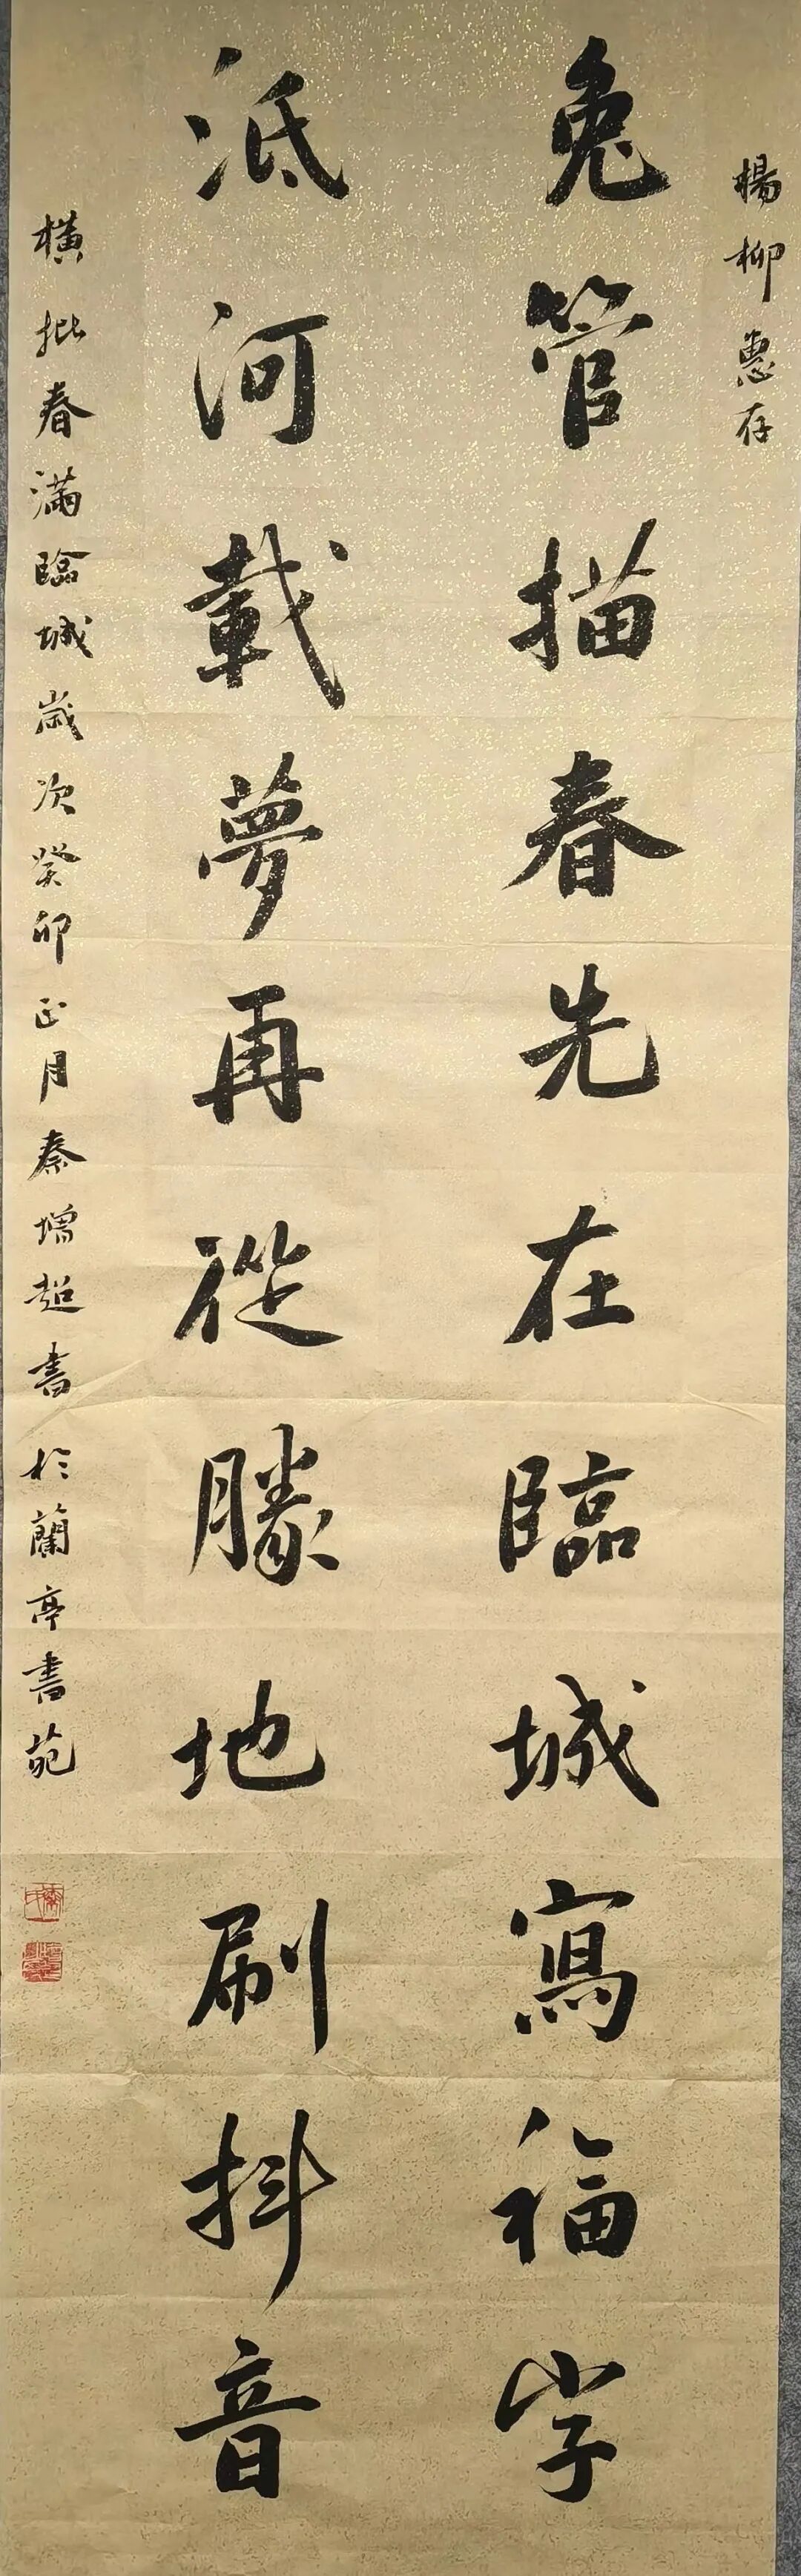 楊柳惠存
兔管描春先在臨城寫福字
泜河載夢再從勝地刷抖音
橫批春滿臨城歲次癸卯正月秦增超書於蘭亭書苑